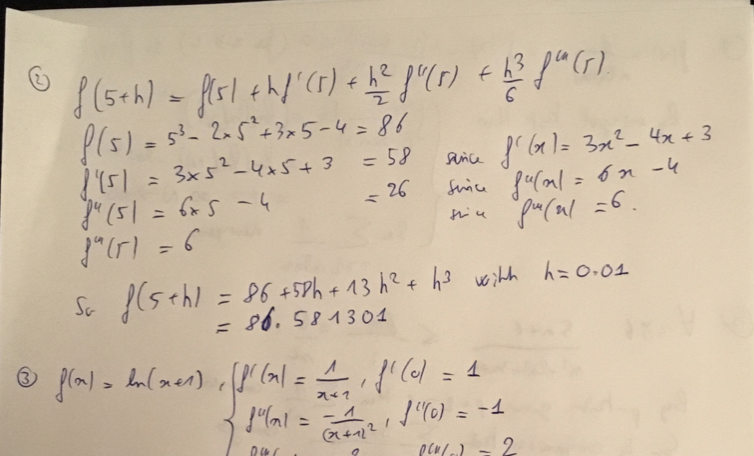 ② f(5+h) = f(5) + hf'(5) + h²/2 f''(5) + h³/6 f'''(5).
f(5) = 5³ - 2×5² + 3×5 - 4 = 86
f'(5) = 3×5² - 4×5 + 3 = 58 since f'(x) = 3x² - 4x + 3
f''(5) = 6×5 - 4 = 26 since f''(x) = 6x - 4
f'''(5) = 6 since f'''(x) = 6.
So f(5+h) = 86 + 58h + 13h² + h³ with h = 0.01
= 86.581301
③ f(x) = ln(x+1), { f'(x) = 1/(x+1), f'(0) = 1
f''(x) = -1/(x+1)², f''(0) = -1
= 2